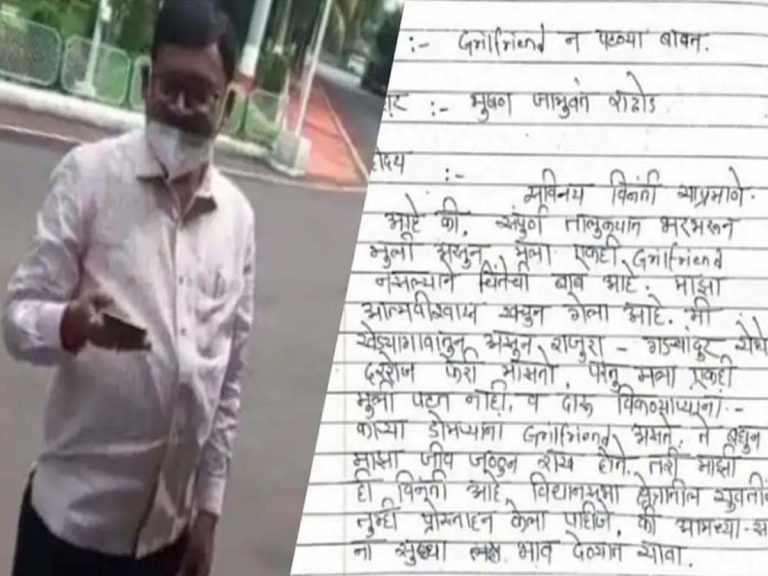 :- Grilfriend न पटण्या बाबत.
:- भुषण जांबुवंत राठोड
होदय :-
सविनय विनंती याप्रमाणे
आहे की, संपुर्ण तालुक्यात भरभरून
मुली असुन, मला एकही Grilfriend
नसल्याने चिंतेची बाब आहे. माझा
आत्मवीश्वास खचुन गेला आहे. मी
खेड्यागावातुन असुन, राजुरा - गडचांदूर येथे
दररोज फेरी मारतो, परंतु मला एकही
मुली पटत नाही, व दारू -
काऱ्या Grilfriend असते. ते बघुन
माझा जीव जळुन राख होतो. तरी माझी
ही विनंती आहे, विधानसभा क्षेत्रातील
तुम्ही प्रोत्साहन केला पाहीजे, की आमच्या-
ना सुध्दा भाव देण्यात यावा.